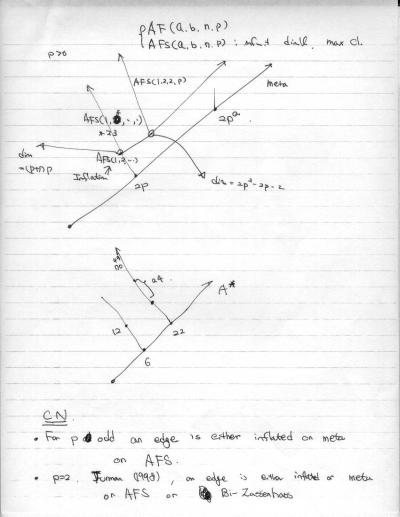 AF(a, b, n, p)
AFS(a, b, n, p) : infinit diall, max cl.
p>0
AFS(1,2,2,p)
meta
2pᵃ
AFS(1,
AFS(1,
dim
Inflation
2p
dim = 2p²-2p-2
24
A*
12
22
6
CN
• For p odd an edge is either inflated or meta
or AFS.
• p=2. (1998), an edge is either inflated or meta
or AFS or Bi-Zassenhaus